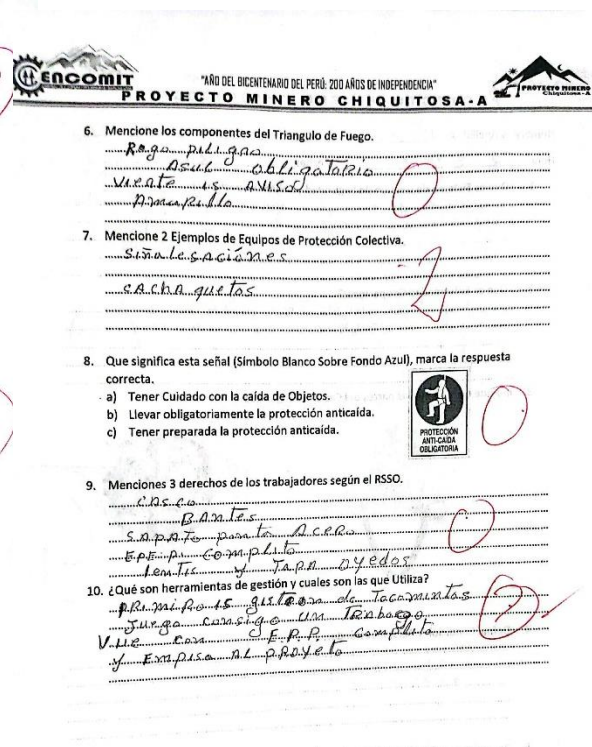 ENCOMIT
"AÑO DEL BICENTENARIO DEL PERÚ: 200 AÑOS DE INDEPENDENCIA"
PROYECTO MINERO CHIQUITOSA-A
PROYECTO MINERO
Chiquitosa-A
6. Mencione los componentes del Triangulo de Fuego.
Rogo piligno
Asul obligatorio
Viente is avisod
Amarillo
0
7. Mencione 2 Ejemplos de Equipos de Protección Colectiva.
Siñalesaciónes
cachaquetos
2
8. Que significa esta señal (Símbolo Blanco Sobre Fondo Azul), marca la respuesta
correcta.
a) Tener Cuidado con la caída de Objetos.
b) Llevar obligatoriamente la protección anticaída.
c) Tener preparada la protección anticaída.
PROTECCIÓN
ANTI-CAIDA
OBLIGATORIA
0
9. Menciones 3 derechos de los trabajadores según el RSSO.
casco
Bantes
Sapato punta Acero
E.P.P. complito
lentis y tapa oyedos
0
10. ¿Qué son herramientas de gestión y cuales son las que Utiliza?
primiro is gistion de Tocomintos
Juego consigo un Trabaego
Vue con E.P.P. Complito
y Empisa al proyeto